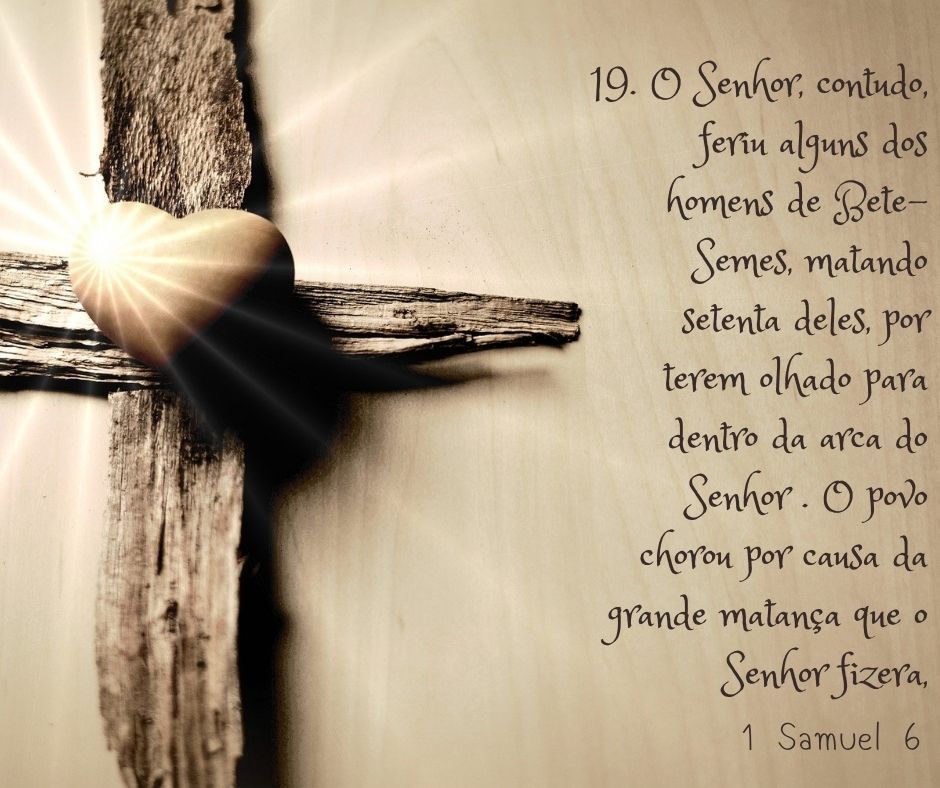 19. O Senhor, contudo,
feriu alguns dos
homens de Bete-
Semes, matando
setenta deles, por
terem olhado para
dentro da arca do
Senhor . O povo
chorou por causa da
grande matança que o
Senhor fizera,
1 Samuel 6